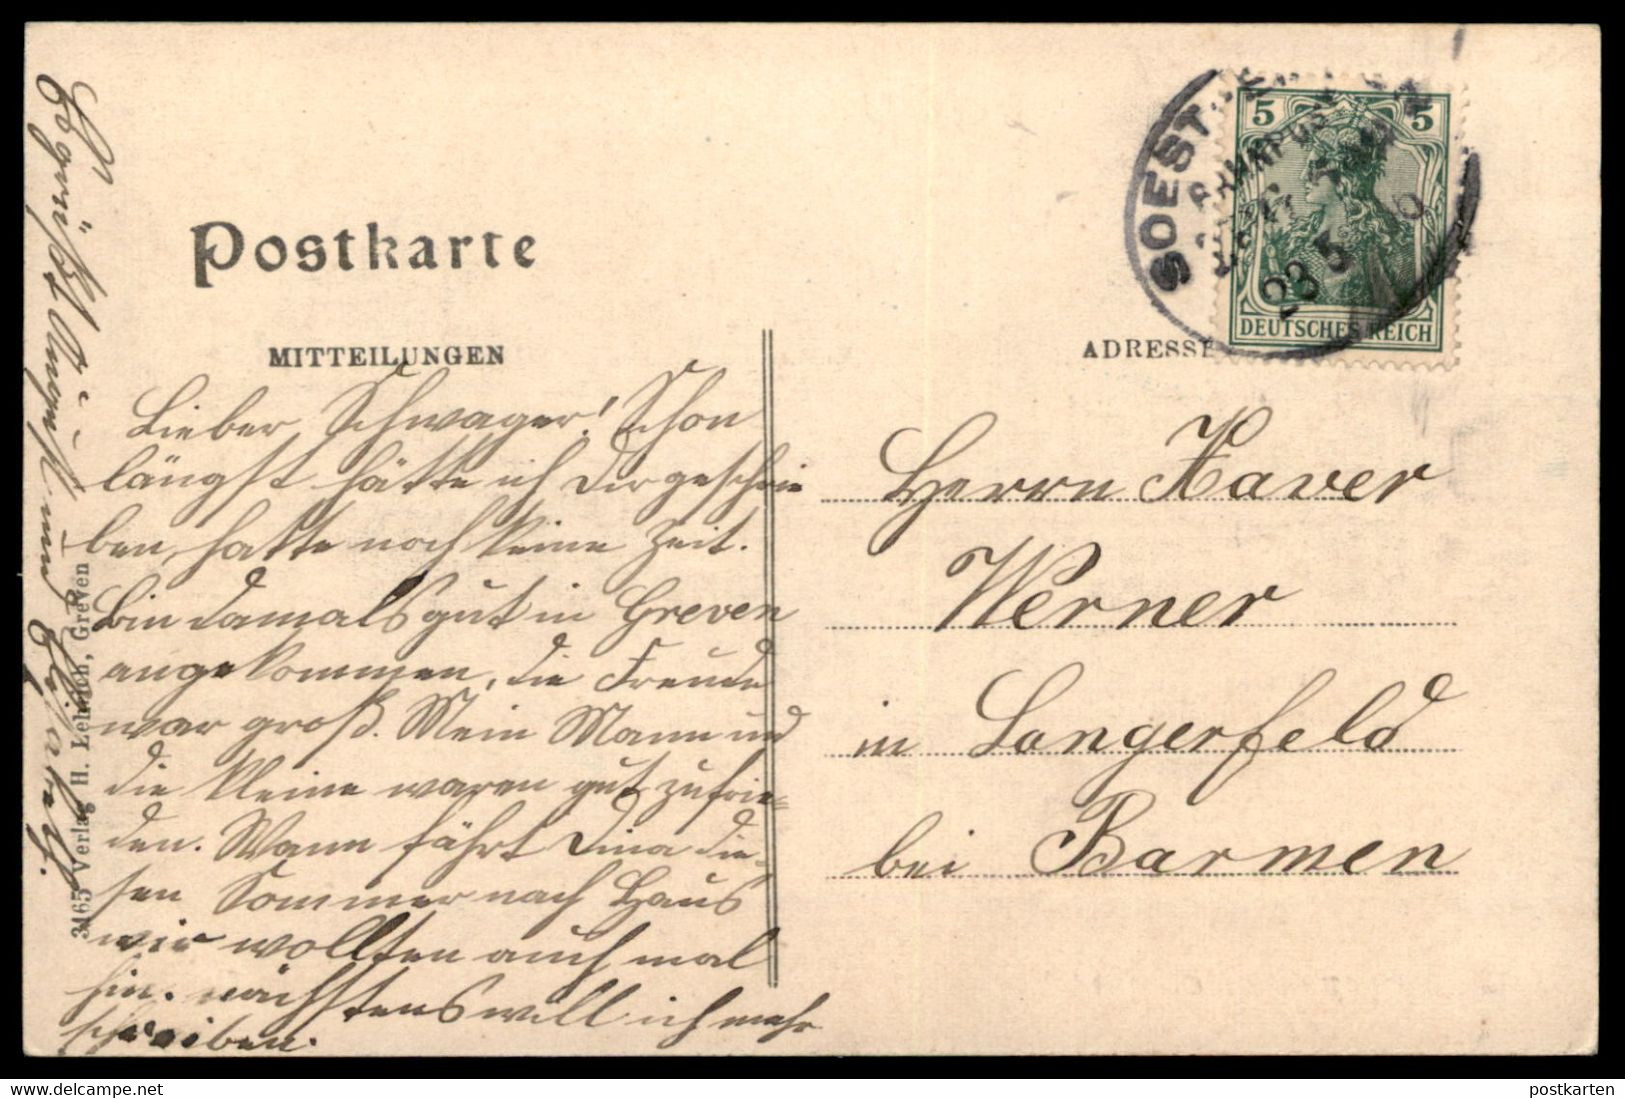 Postkarte
MITTEILUNGEN
ADRESSE
Lieber Schwager! Schon
längst hätte ich Dir geschrie
ben, hatte noch keine Zeit.
Bin damals gut in Greven
angekommen, die Freude
war groß. Mein Mann und
die Kleine waren gut zufrie=
den. Wann fährt Dina die=
sen Sommer nach Haus
wir wollten auch mal
hin. nächstens will ich mehr
schreiben.
Herrn Xaver
Werner
in Langerfeld
bei Barmen
3165 Verlag H. Lehrich, Greven
SOEST
BAHNPOST
23 5
5 5
DEUTSCHES REICH
postkarten